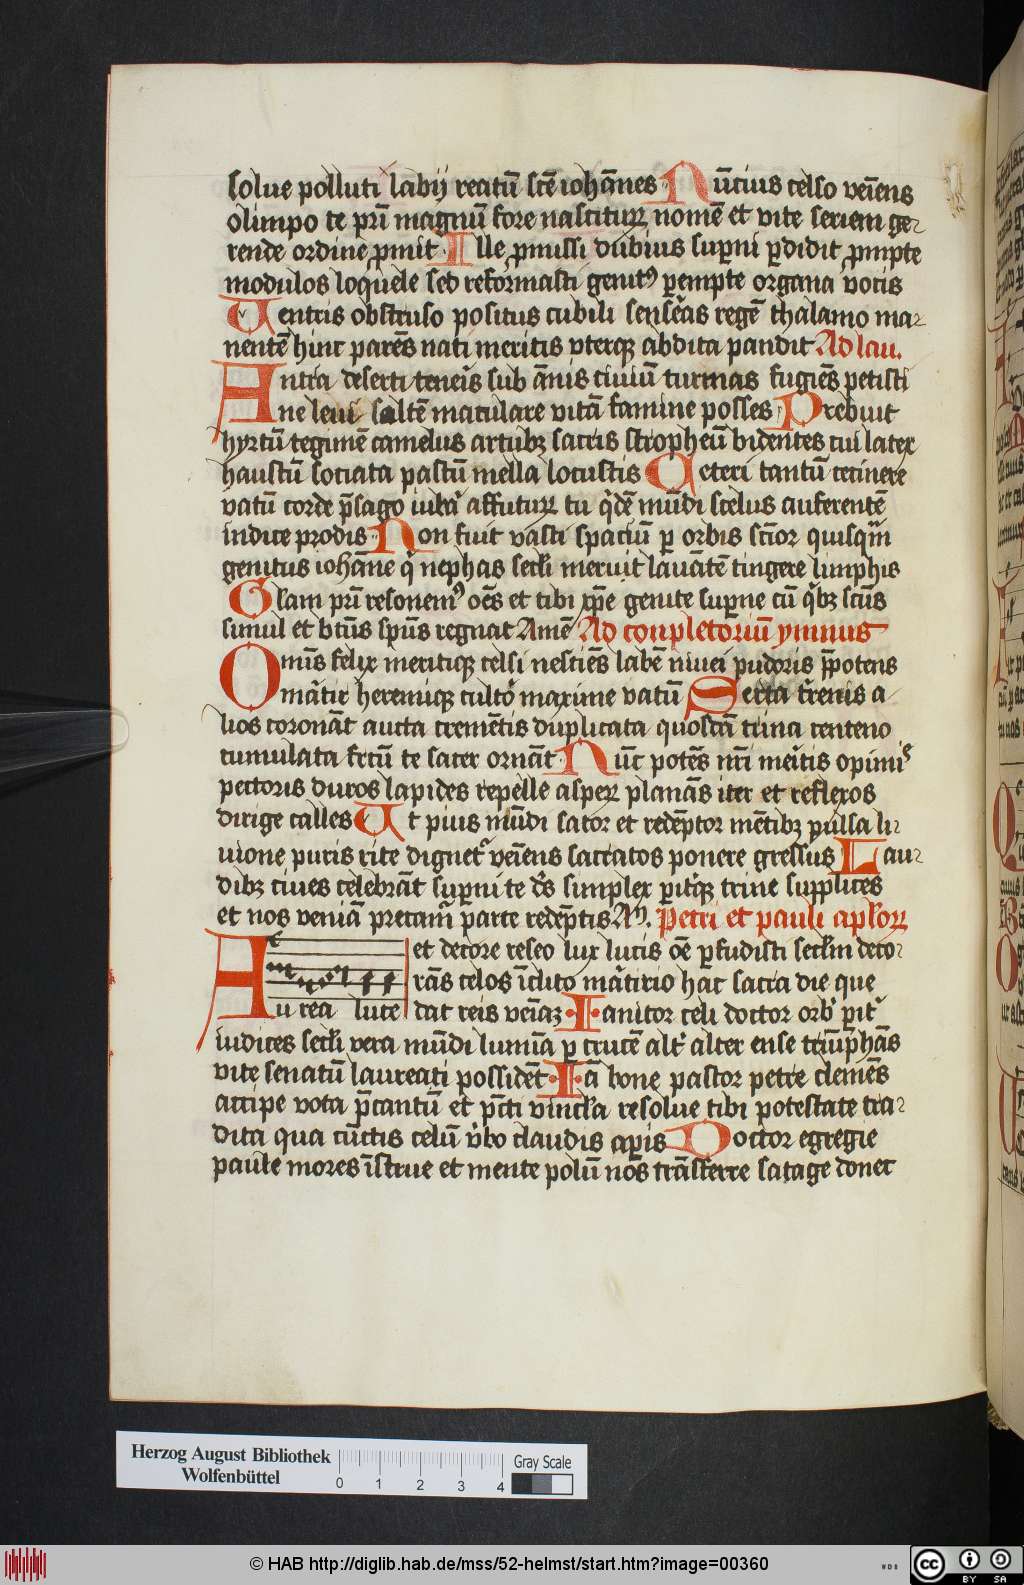 solue polluti labij reatū scē iohānes Nūcius celso veīens
olimpo te pr̄i magnū fore nasciturꝝ nomē et vite seriem ge-
rende ordine ꝓmit Ille ꝓmissi dubius suꝑni ꝑdidit ꝓmpte
modulos loquele sed reformasti genitꝰ ꝑempte organa vocis
Ventris obstruso positus cubili senseras regē thalamo ma-
nentē hinc parēs nati meritis vterqꝫ abdita pandit Ad lau.
Antra deserti teneīs sub ānis ciuiū turmas fugiēs petisti
ne leui saltē maculare vitā famine posses Prebuit
hyrtū tegimē camelus artubꝫ sacris stropheū bidentes cui latex
haustū sociata pastū mella locustis Ceteri tantū cecinere
vatū corde p̄sago iubar affuturꝝ tu q̇dē mūdi scelus auferentē
indice prodis Non fuit vasti spaciū ꝑ orbis sc̄ior quisqm̄
genitus iohāne q̇ nephas secli meruit lauātē tingere limphis
Glam pr̄i resonemꝰ oēs et tibi xp̄e genite suꝑne cū q̇bꝫ sctūs
simul et btūs sp̄us regnat Amē Ad conpletoriū ymnus
O nimīs felix meritiqꝫ celsi nesciēs labē niuei pudoris p̄potens
martir heremiqꝫ cultoꝛ maxime vatū Serta t̓renis a
lios coronāt aucta cremētis duplicata quosdā trina centeno
cumulata fctū te sacer ornāt Nūc potēs nr̄i meritis opimis
pectoris duros lapides repelle asperꝝ planās iter et reflexos
dirige calles Ut pius mūdi sator et redēptor mētibꝫ pulsa li-
uione puris rite dignetᷣ veīens sacratos ponere gressus Lau-
dibꝫ ciues celebrāt suꝑni te ds̄ simplex pit̓qꝫ trine supplices
et nos veniā precamᷣ parte redēptis Aᷠ. Petri et pauli apl̄oꝝ
Aurea luce et decore roseo lux lucis oē ꝑfudisti seclm deco-
rās celos īclito martirio hac sacra die que
dat reis veīaꝫ Ianitor celi doctor orbᷤ pit̓
iudices secli vera mūdi lumīa ꝑ crucē alt̓ alter ense triūphās
vite senatū laureati possidēt Iā bone pastor petre clemēs
accipe vota p̄cantū et p̄cti vincla resolue tibi potestate tra-
dita qua cūctis celū v̓bo claudis aꝑis Doctor egregie
paule mores īstrue et mente polū nos trāsferre satage donec
Herzog August Bibliothek
Wolfenbüttel
0 1 2 3 4
Gray Scale
© HAB http://diglib.hab.de/mss/52-helmst/start.htm?image=00360
WDB
cc BY SA